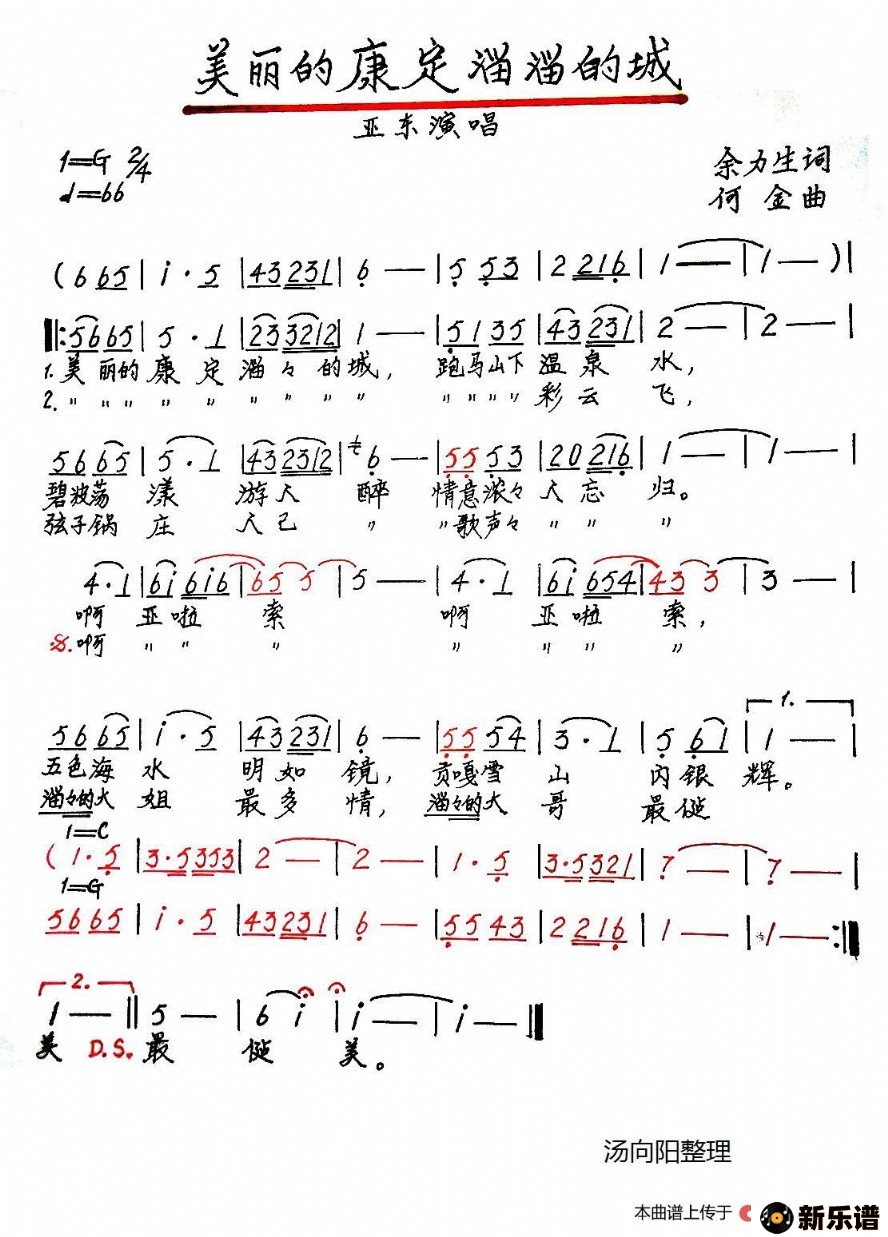 美丽的康定溜溜的城
亚东演唱
1=G 2/4
♩=66
余力生词
何金曲
( 6 6 5 | i · 5 | 4 3 2 3 1 | 6 — | 5 5 3 | 2 2 1 6 | 1 — | 1 — ) |
‖: 5 6 6 5 | 5 · 1 | 2 3 3 2 1 2 | 1 — | 5 1 3 5 | 4 3 2 3 1 | 2 — | 2 — |
1. 美丽的康定溜々的城, 跑马山下温泉水,
2. 〃 〃 〃 〃 〃 〃 〃 〃 〃 〃 〃 〃 〃 彩云飞,
5 6 6 5 | 5 · 1 | 4 3 2 3 1 2 | 6 — | 5 5 5 3 | 2 0 2 1 6 | 1 — | 1 — |
碧波荡漾游人醉 情意浓々人忘归。
弦子锅庄人已〃 〃歌声々〃〃〃
4 · 1 | 6 i 6 i 6 | 6 5 5 | 5 — | 4 · 1 | 6 i 6 5 4 | 4 3 3 | 3 — |
啊亚啦索 啊亚啦索,
𝄋.啊〃〃〃 〃〃〃〃
1.
5 6 6 5 | i · 5 | 4 3 2 3 1 | 6 — | 5 5 5 4 | 3 · 1 | 5 6 1 | 1 — |
五色海水明如镜, 贡嘎雪山闪银辉。
溜々的大姐最多情, 溜々的大哥最
1=C
( 1 · 5 | 3 · 5 3 5 3 | 2 — | 2 — | 1 · 5 | 3 · 5 3 2 1 | 7 — | 7 — |
1=G
5 6 6 5 | i · 5 | 4 3 2 3 1 | 6 — | 5 5 4 3 | 2 2 1 6 | 1 — | 1 — :‖
2.
1 — ‖ 5 — | 6 i | i — | i — ‖
美 D.S. 最 美。
汤向阳整理
本曲谱上传于 新乐谱